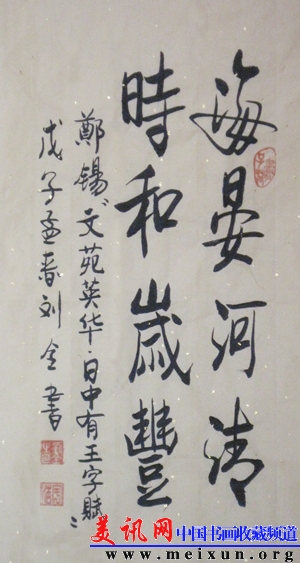 海晏河清
時和歲豐
鄭錫《文苑英华·日中有王字賦》
戊子孟春刘全書
美讯网
中国书画收藏频道
www.meixun.org